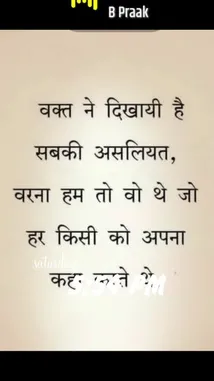 B Praak
वक्त ने दिखायी है
सबकी असलियत,
वरना हम तो वो थे जो
हर किसी को अपना
कहा करते थे
PM